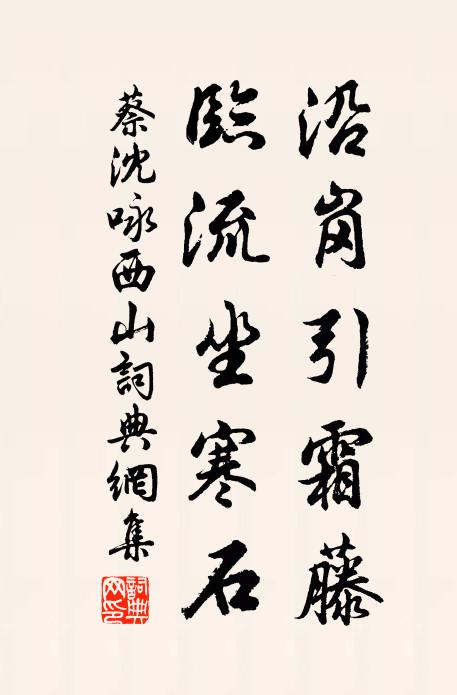 沿崗引霜藤
臨流坐寒石
蔡沈咏西山詞典網集
詞典
网印